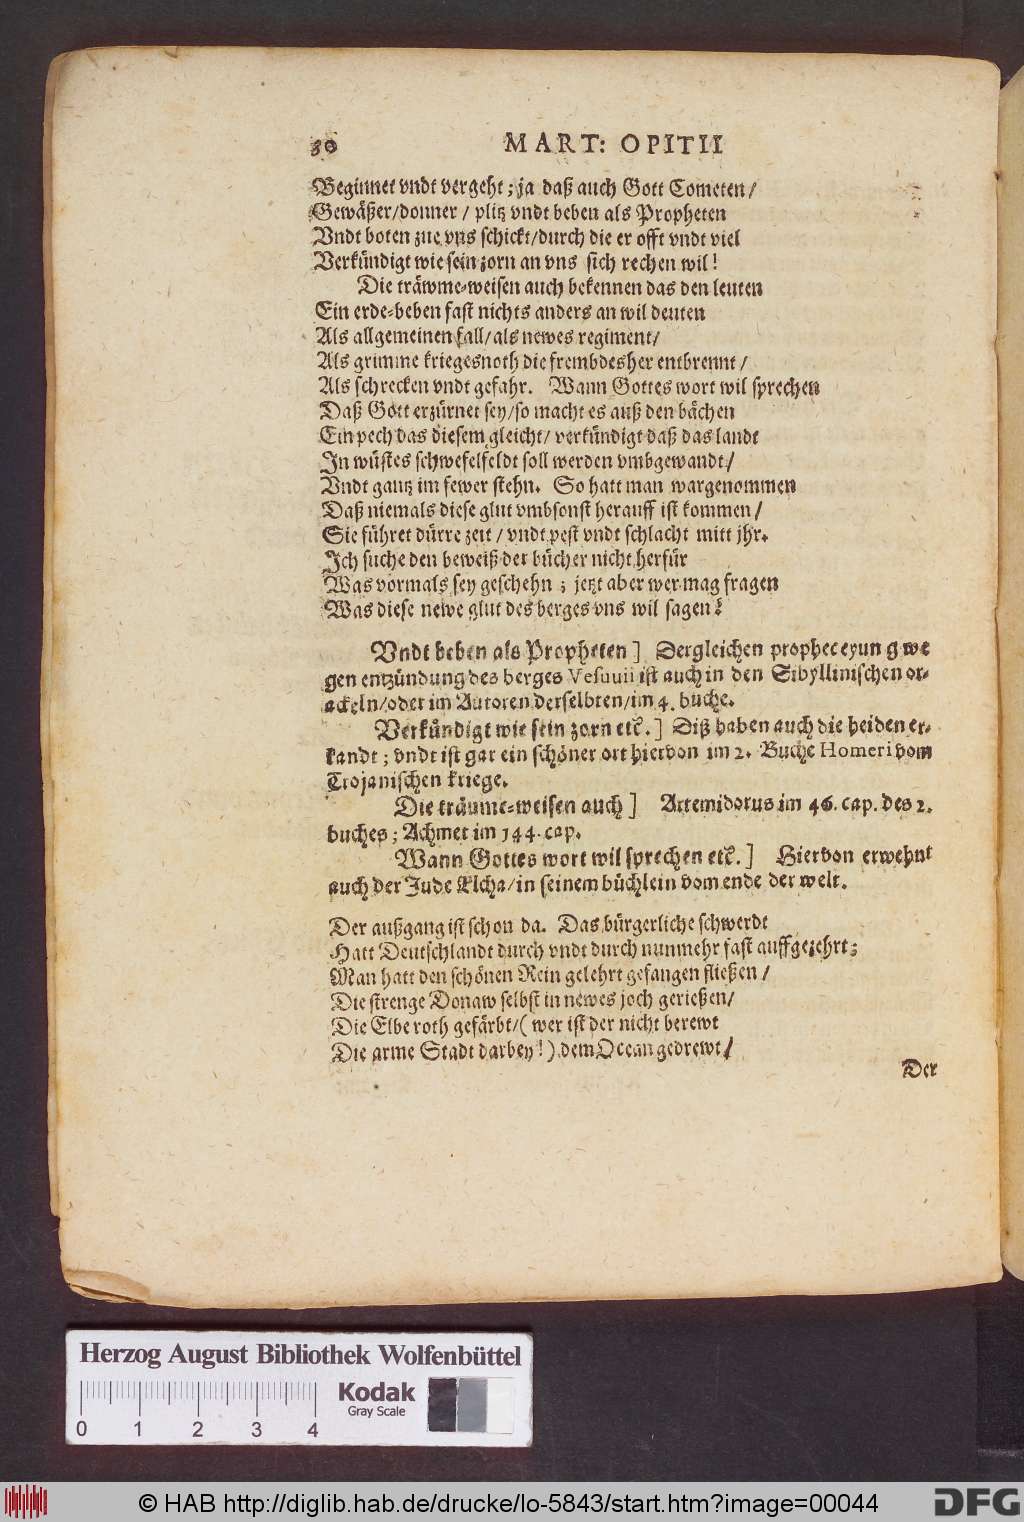 30 MART: OPITII
Beginnet vndt vergeht; ja daß auch Gott Cometen/
Gewäßer/donner / plitz vndt beben als Propheten
Vndt boten zue vns schickt/durch die er offt vndt viel
Verkündigt wie sein zorn an vns sich rechen wil!
Die träwme-weisen auch bekennen das den leuten
Ein erde-beben fast nichts anders an wil deuten
Als allgemeinen fall/als newes regiment/
Als grimme kriegesnoth die frembdesher entbrennt/
Als schrecken vndt gefahr. Wann Gottes wort wil sprechen
Daß Gott erzürnet sey/so macht es auß den bächen
Ein pech das diesem gleicht/ verkündigt daß das landt
In wüstes schwefelfeldt soll werden vmbgewandt/
Vndt gantz im fewer stehn. So hatt man wargenommen
Daß niemals diese glut vmbsonst herauff ist kommen/
Sie führet dürre zeit / vndt pest vndt schlacht mitt jhr.
Ich suche den beweiß der bücher nicht herfür
Was vormals sey geschehn ; jetzt aber wer mag fragen
Was diese newe glut des berges vns wil sagen?
Vndt beben als Propheten] Dergleichen propheceyun g we
gen entzündung des berges Vesuuii ist auch in den Sibyllinischen or-
ackeln/oder im Autoren derselbten/im 4. buche.
Verkündigt wie sein zorn etc.] Diß haben auch die heiden er-
kandt; vndt ist gar ein schöner ort hiervon im 2. Buche Homeri vom
Trojanischen kriege.
Die träume-weisen auch] Artemidorus im 46. cap. des 2.
buches; Achmet im 144. cap.
Wann Gottes wort wil sprechen etc.] Hiervon erwehnt
auch der Jude Alcha/in seinem büchlein vom ende der welt.
Der außgang ist schon da. Das bürgerliche schwerdt
Hatt Deutschlandt durch vndt durch nunmehr fast auffgezehrt;
Man hatt den schönen Rein gelehrt gefangen fließen /
Die strenge Donaw selbst in newes joch gerießen/
Die Elbe roth gefärbt/( wer ist der nicht berewt
Die arme Stadt darbey!) dem Ocean gedrewt/
Der
Herzog August Bibliothek Wolfenbüttel
Kodak
Gray Scale
0 1 2 3 4
© HAB http://diglib.hab.de/drucke/lo-5843/start.htm?image=00044
DFG